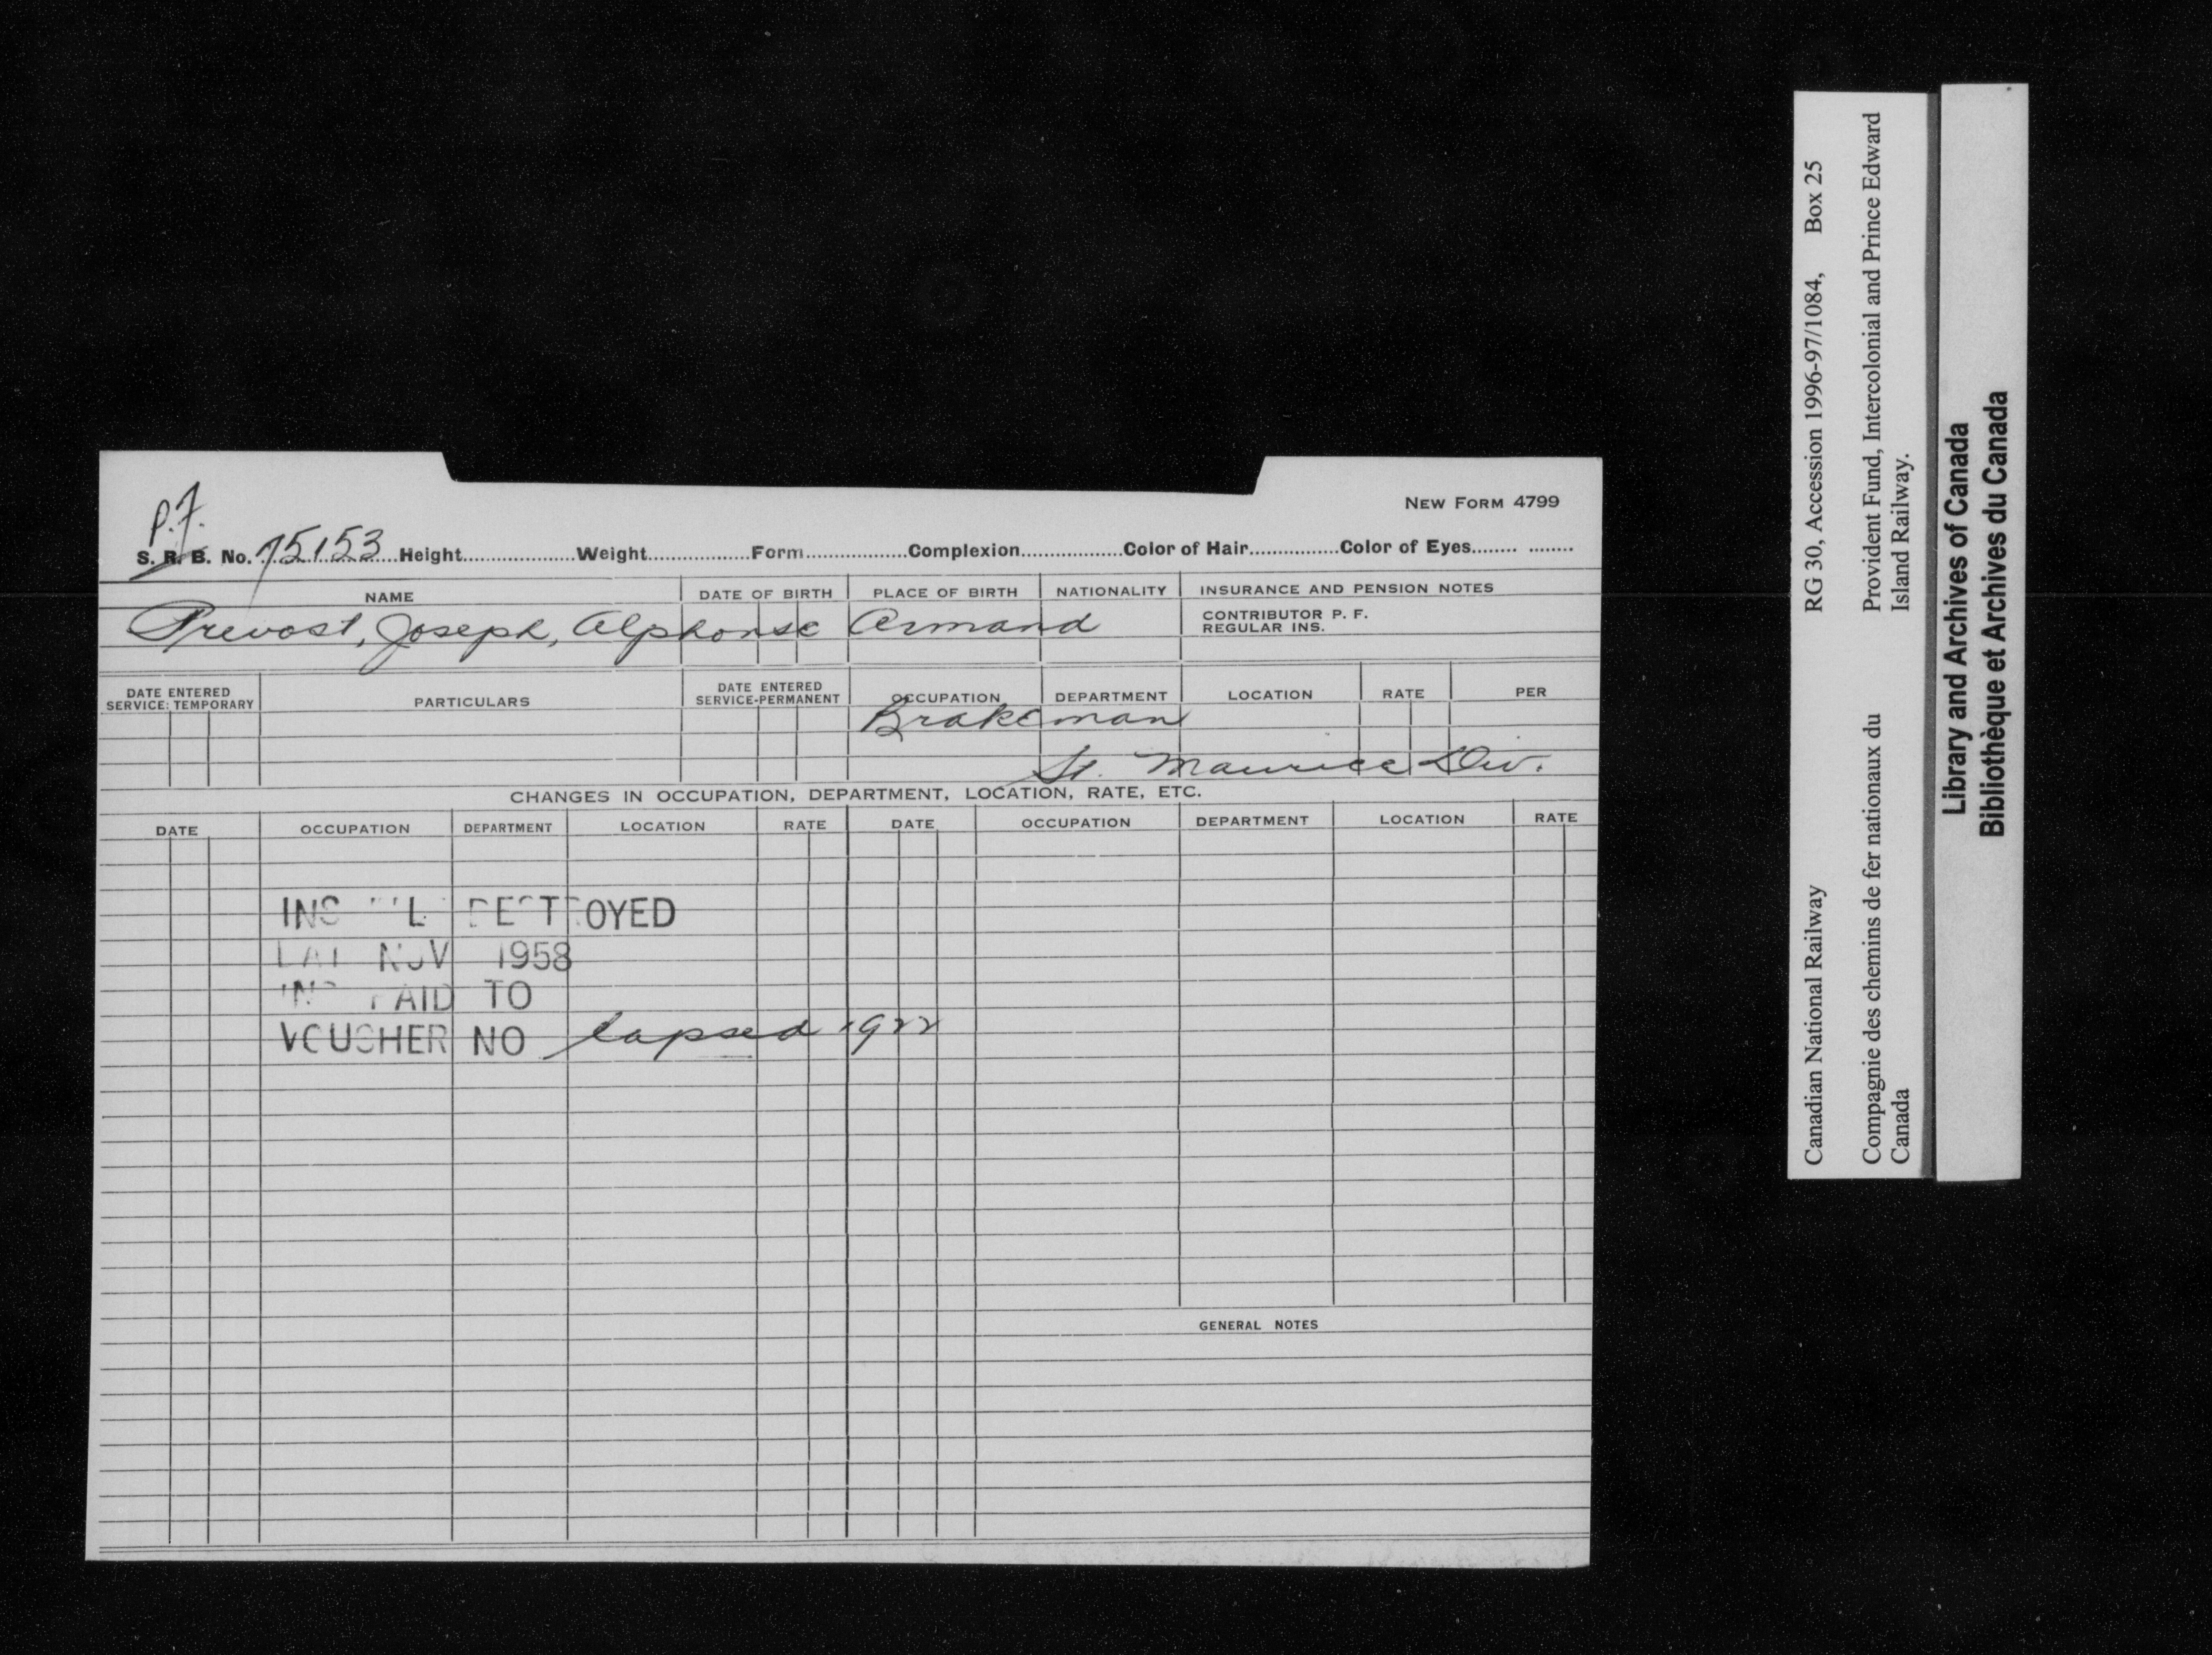 NEW FORM 4799
P.F.
S. R. B. No. 75153 Height Weight Form Complexion Color of Hair Color of Eyes
NAME DATE OF BIRTH PLACE OF BIRTH NATIONALITY INSURANCE AND PENSION NOTES
CONTRIBUTOR P. F.
REGULAR INS.
Prevost, Joseph, Alphonse Armand
DATE ENTERED SERVICE: TEMPORARY PARTICULARS DATE ENTERED SERVICE-PERMANENT OCCUPATION DEPARTMENT LOCATION RATE PER
Brakeman
St. Maurice Div.
CHANGES IN OCCUPATION, DEPARTMENT, LOCATION, RATE, ETC.
DATE OCCUPATION DEPARTMENT LOCATION RATE DATE OCCUPATION DEPARTMENT LOCATION RATE
DESTROYED
NOV 1958
PAID TO
VOUCHER NO lapsed 1922
GENERAL NOTES
Canadian National Railway RG 30, Accession 1996-97/1084, Box 25
Compagnie des chemins de fer nationaux du Provident Fund, Intercolonial and Prince Edward
Canada Island Railway.
Library and Archives of Canada
Bibliothèque et Archives du Canada